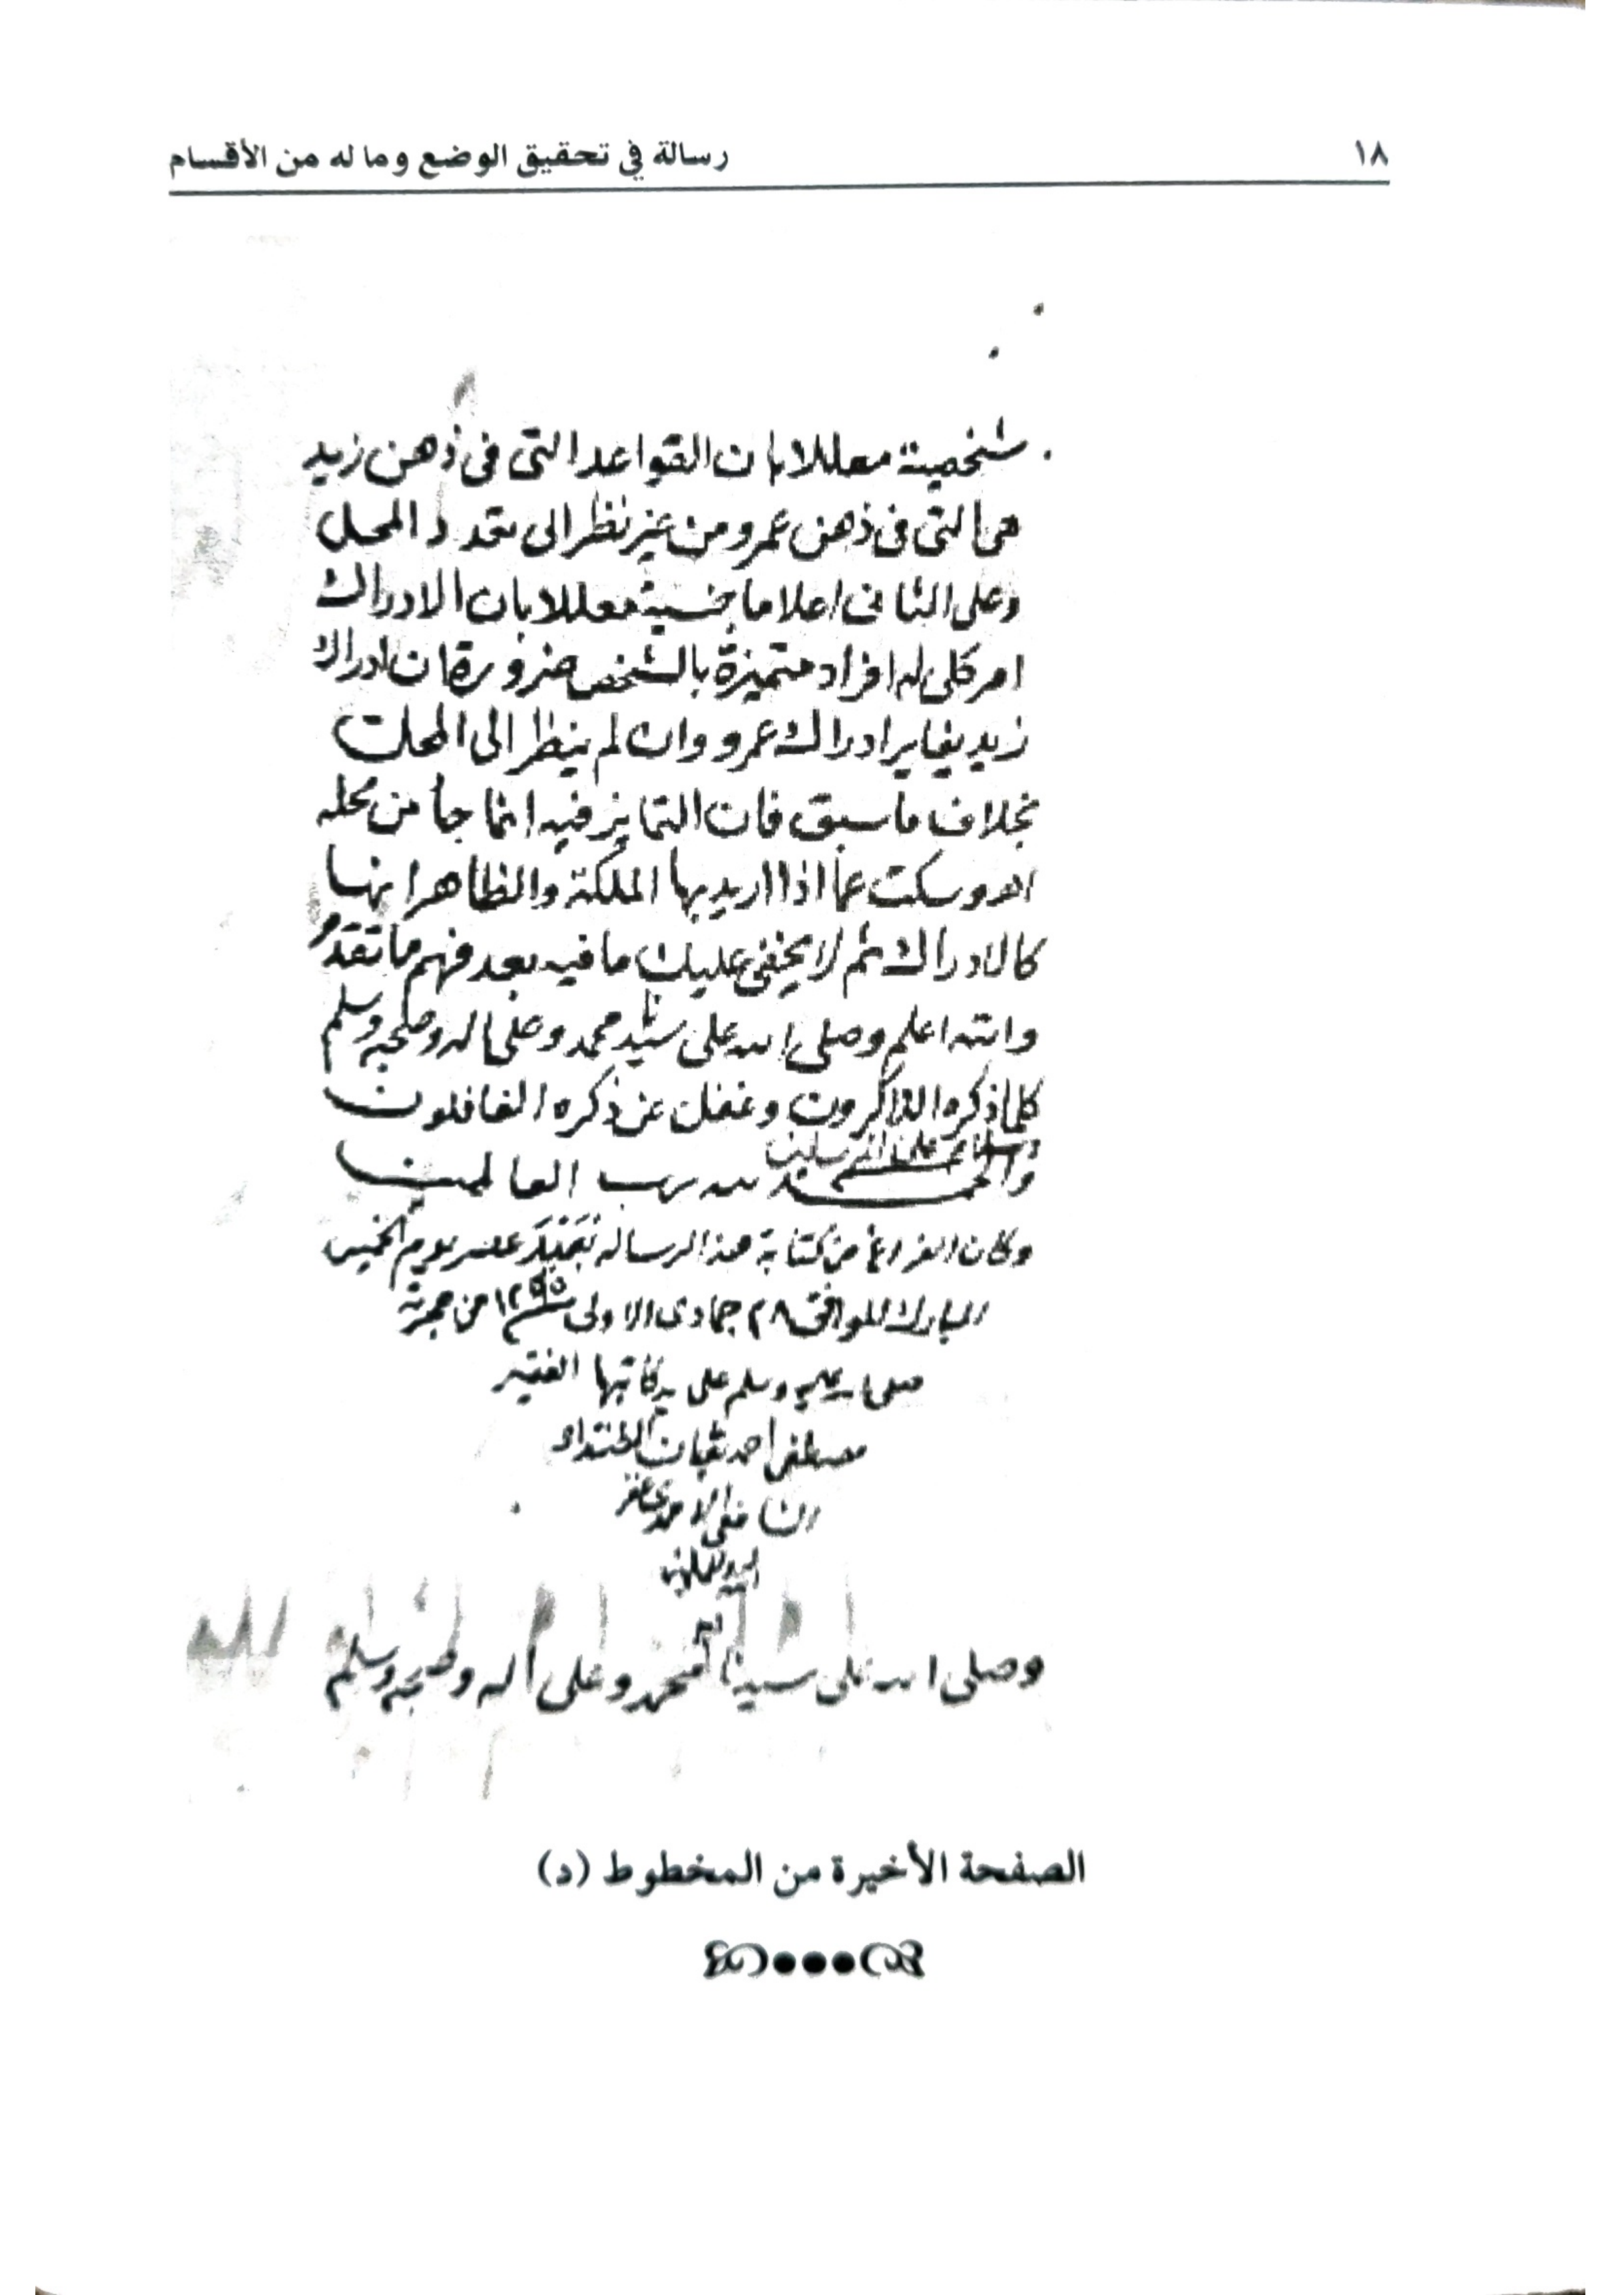 ١٨
رسالة في تحقيق الوضع وما له من الأقسام
شخصية معللا بان القواعد التى فى ذهن زيد
هى التى فى ذهن عمرو من غير نظر الى تعدد المحل
وعلى الثانى اعلاما جنسية معللا بان الادراك
امر كلى له افراد متميزة بالشخص ضرورة ان ادراك
زيد يغاير ادراك عمرو وان لم ينظر الى المحل
بخلاف ما سبق فان التمايز فيه انما جا من محله
اهـ وسكت عما اذا اريد بها الملكة والظاهر انها
كالادراك ثم لا يخفى عليك ما فيه بعد فهم ما تقدم
والله اعلم وصلى الله على سيدنا محمد وعلى اله وصحبه وسلم
كلما ذكره الذاكرون وغفل عن ذكره الغافلون
وسلام على المرسلين
والحمد لله رب العالمين
وكان الفراغ من كتابة هذه الرسالة يوم الخميس
المبارك الموافق ٢٨ جمادى الاولى سنة ١٢٩٥ من هجرته
صلى الله عليه وسلم على يد كاتبها الفقير
مصطفى احمد
الشافعى الاحمدى غفر
وصلى الله على سيدنا محمد وعلى اله وصحبه وسلم
الصفحة الأخيرة من المخطوط (د)